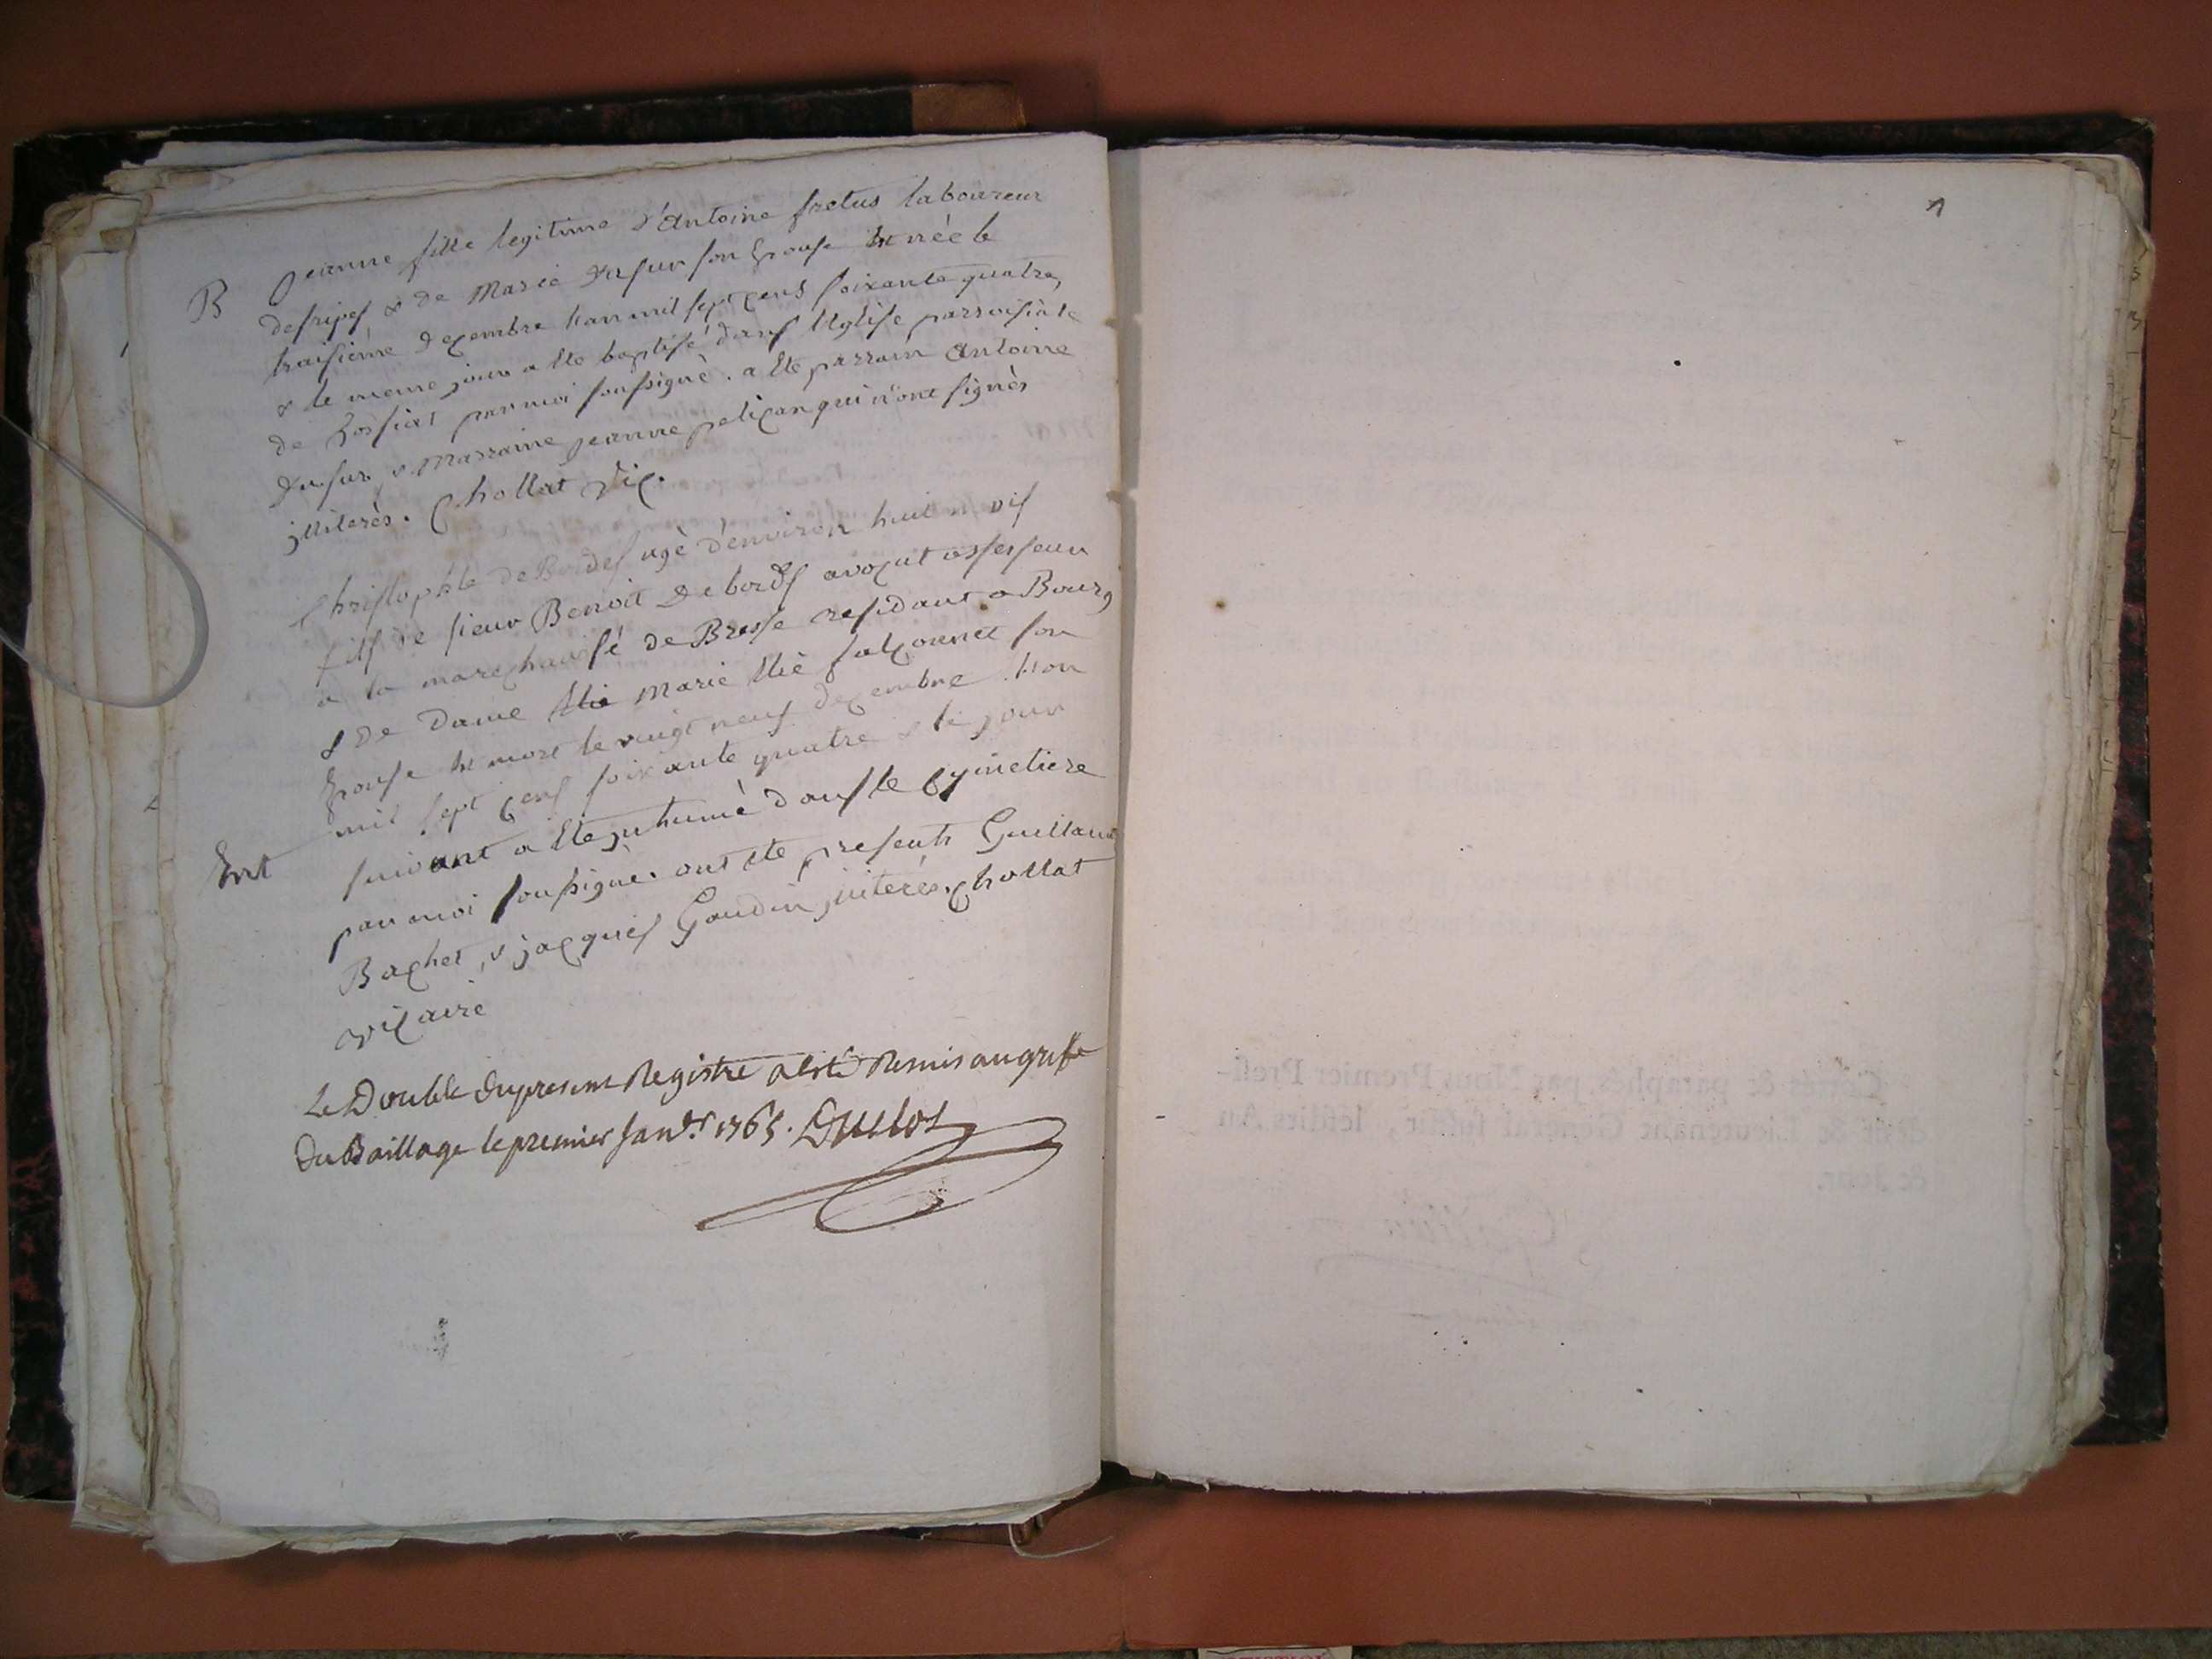 B
jeanne fille legitime d'Antoine fretus laboureur
desripes & de Marie dufur son Epouse Est née le
traisième decembre l'an mil sept cens soixante quatre,
& le meme jour a Ete baptisé dans l'Eglise parroisiale
de par moi soussigné. a Ete parrain Antoine
dufur & Marraine jeanne pelican qui n'ont signés
illiterès. Chollat Vic.
Christophle de Bordes agé d'environ huit mois
fils de sieur Benoit De bordes avocat assesseur
a la marechaussé de Bresse residant a Bourg
& de Dame Marie Elié falconnet son
Epouse Est mort le vingt neuf decembre l'an
mil sept cens soixante quatre & le jour
Ent
suivant a Ete inhumé dans le cymetiere
par moi soussigné. ont Ete presents Guillaume
Bachet, & jacques Gaudin illiterés. chollat
vicaire
Le Double du present Registre a Esté Remis au greffe
Du Baillage le premier Janvr 1765. Guillot
1
Cottés & paraphés, par Nous Premier Presi-
dent & Lieutenant General susdit, lesdits An
& Jour.